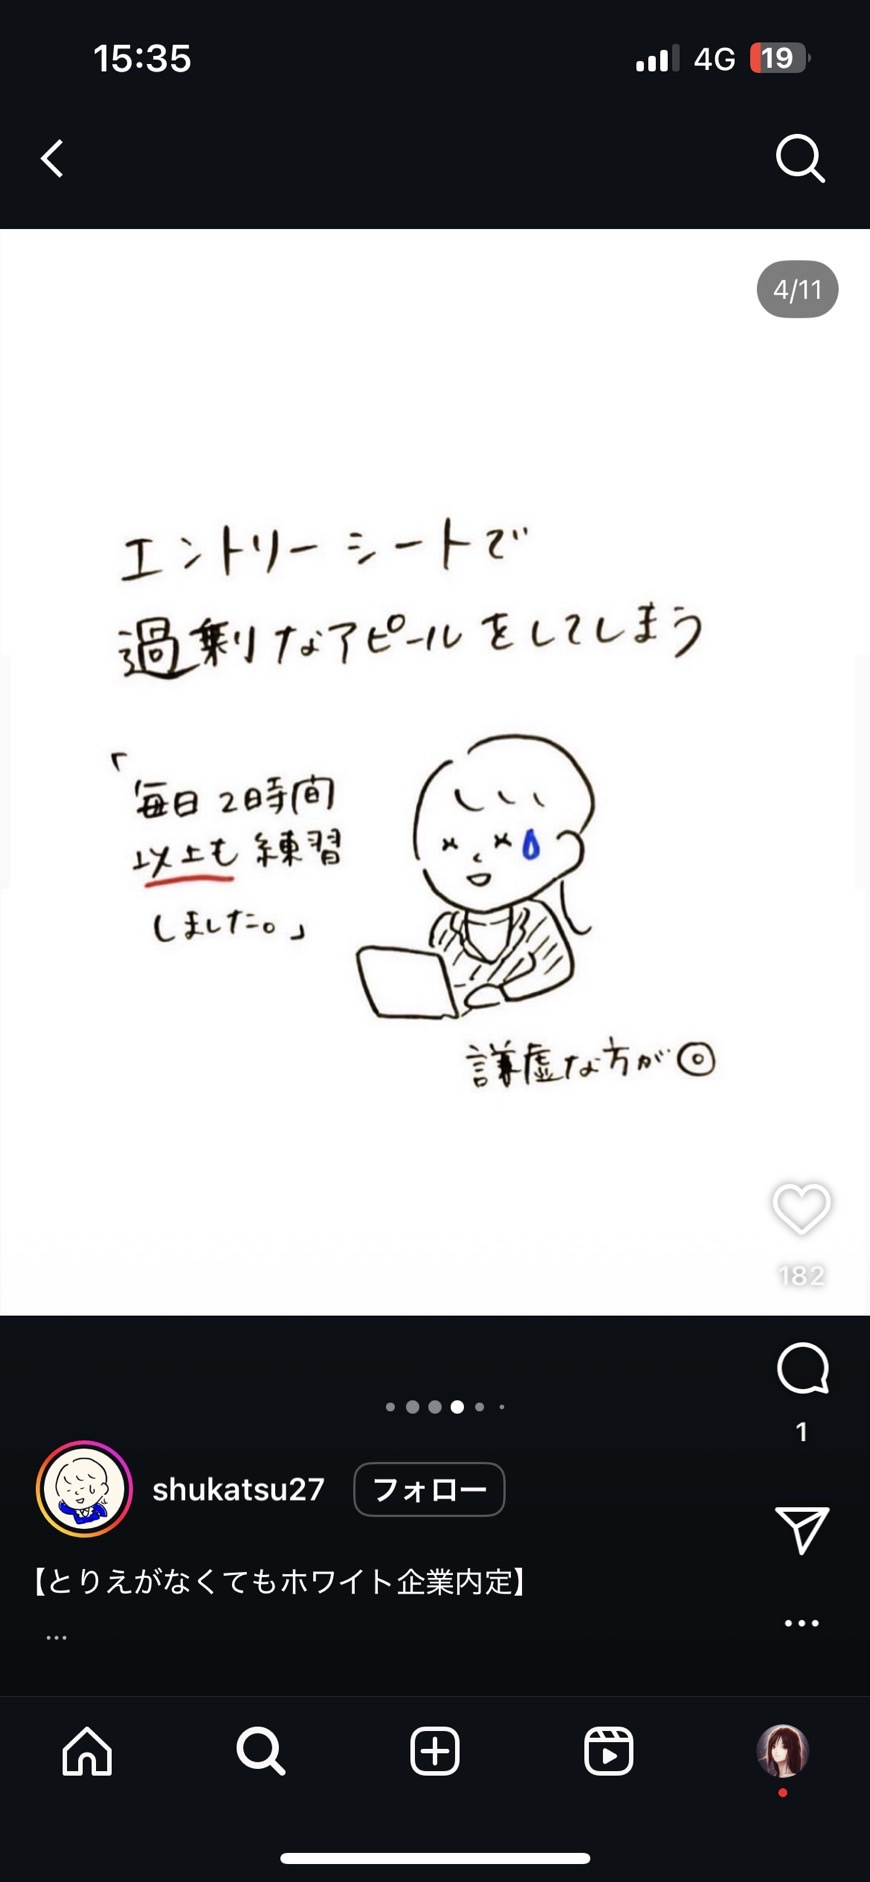 15:35
4G
19
4/11
エントリーシートで
過剰なアピールをしてしまう
「毎日2時間
以上も練習
しました。」
謙虚な方が◎
182
1
shukatsu27
フォロー
【とりえがなくてもホワイト企業内定】
...